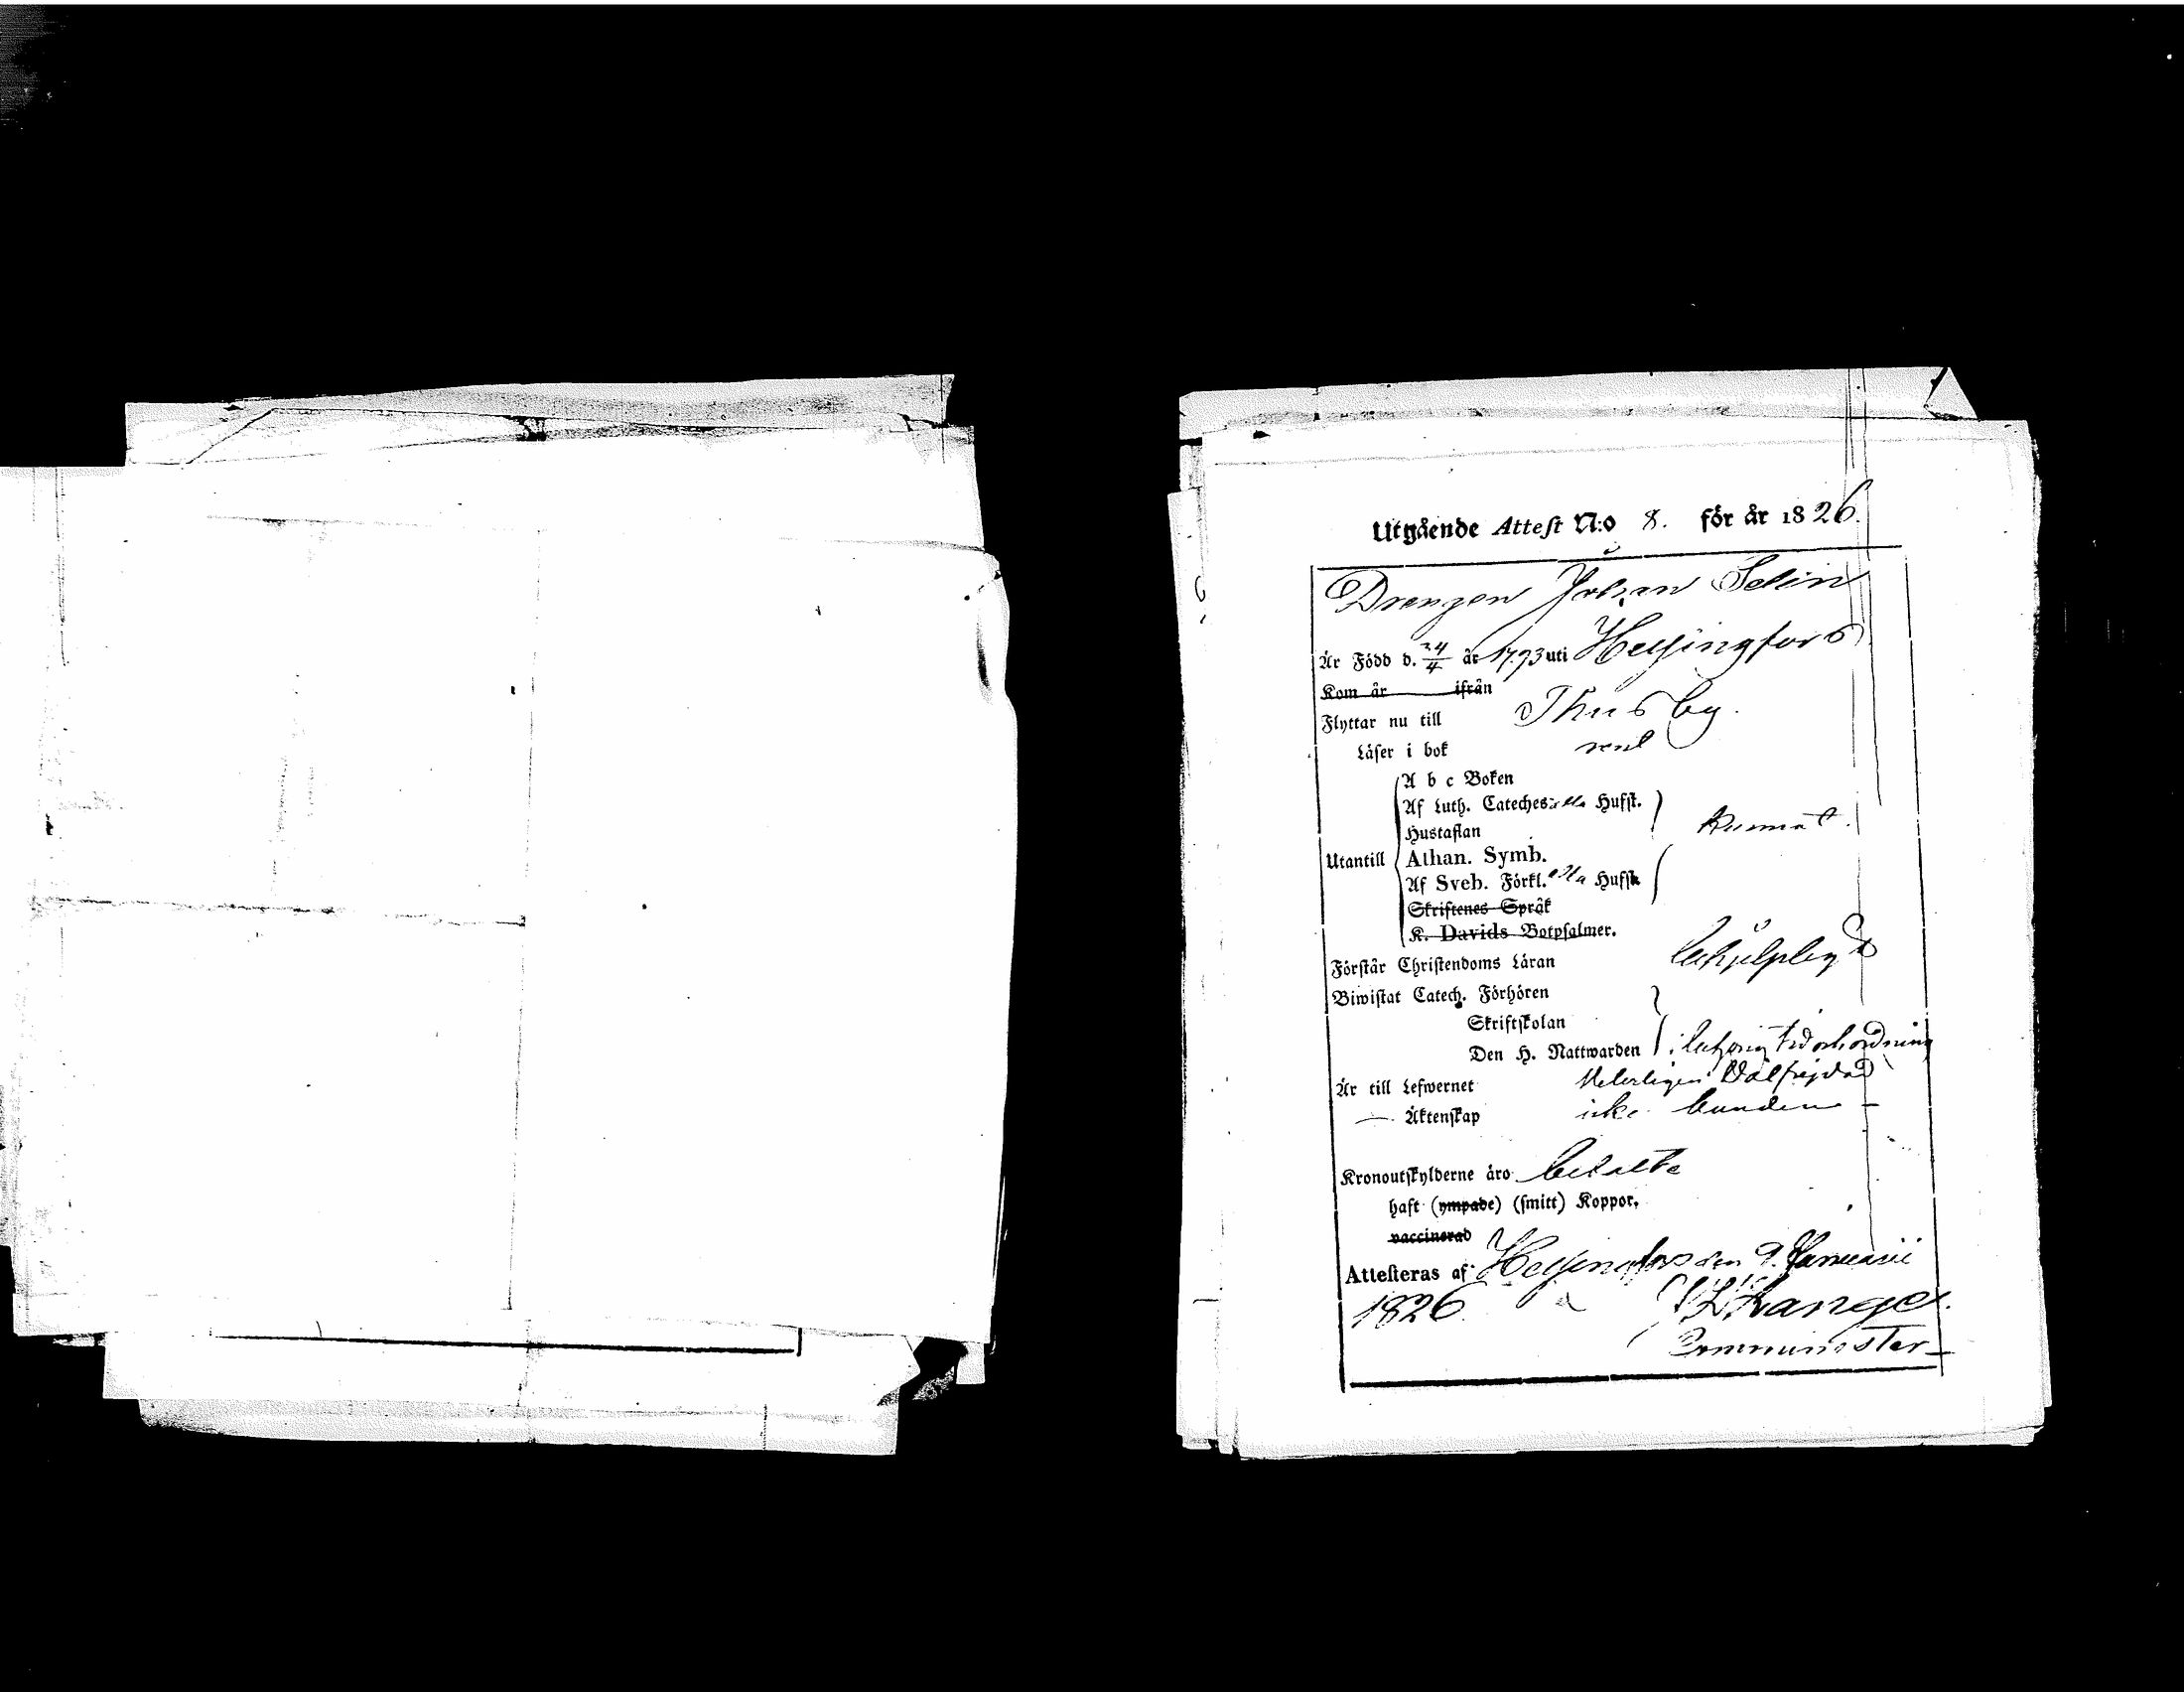 Utgående Attest N:o 8. för år 1826.
Drengen Johan Selin
Är Född d. 24/4 år 1793 uti Helsingfors
Kom år ifrån
Flyttar nu till Thusby.
Läser i bok rent
A b c Boken
Af Luth. Cateches: alla Hufst.
Hustaflan kunnat.
Utantill Athan. Symb.
Af Sveb. Förkl. alla Hufst.
Skriftenes Språk
K. Davids Botpsalmer.
Förstår Christendoms Läran behjelpligt
Biwistat Catech. Förhören
Skriftskolan
Den H. Nattwarden i behörig tid och ordning
Är till Lefwernet Välfrejdad
— Äktenskap icke bunden —
Kronoutskylderne äro betalte
haft (ympade) (smitt) Koppor.
vaccinerad
Attesteras af Helsingfors den 9. Januarii
1826.
Communister